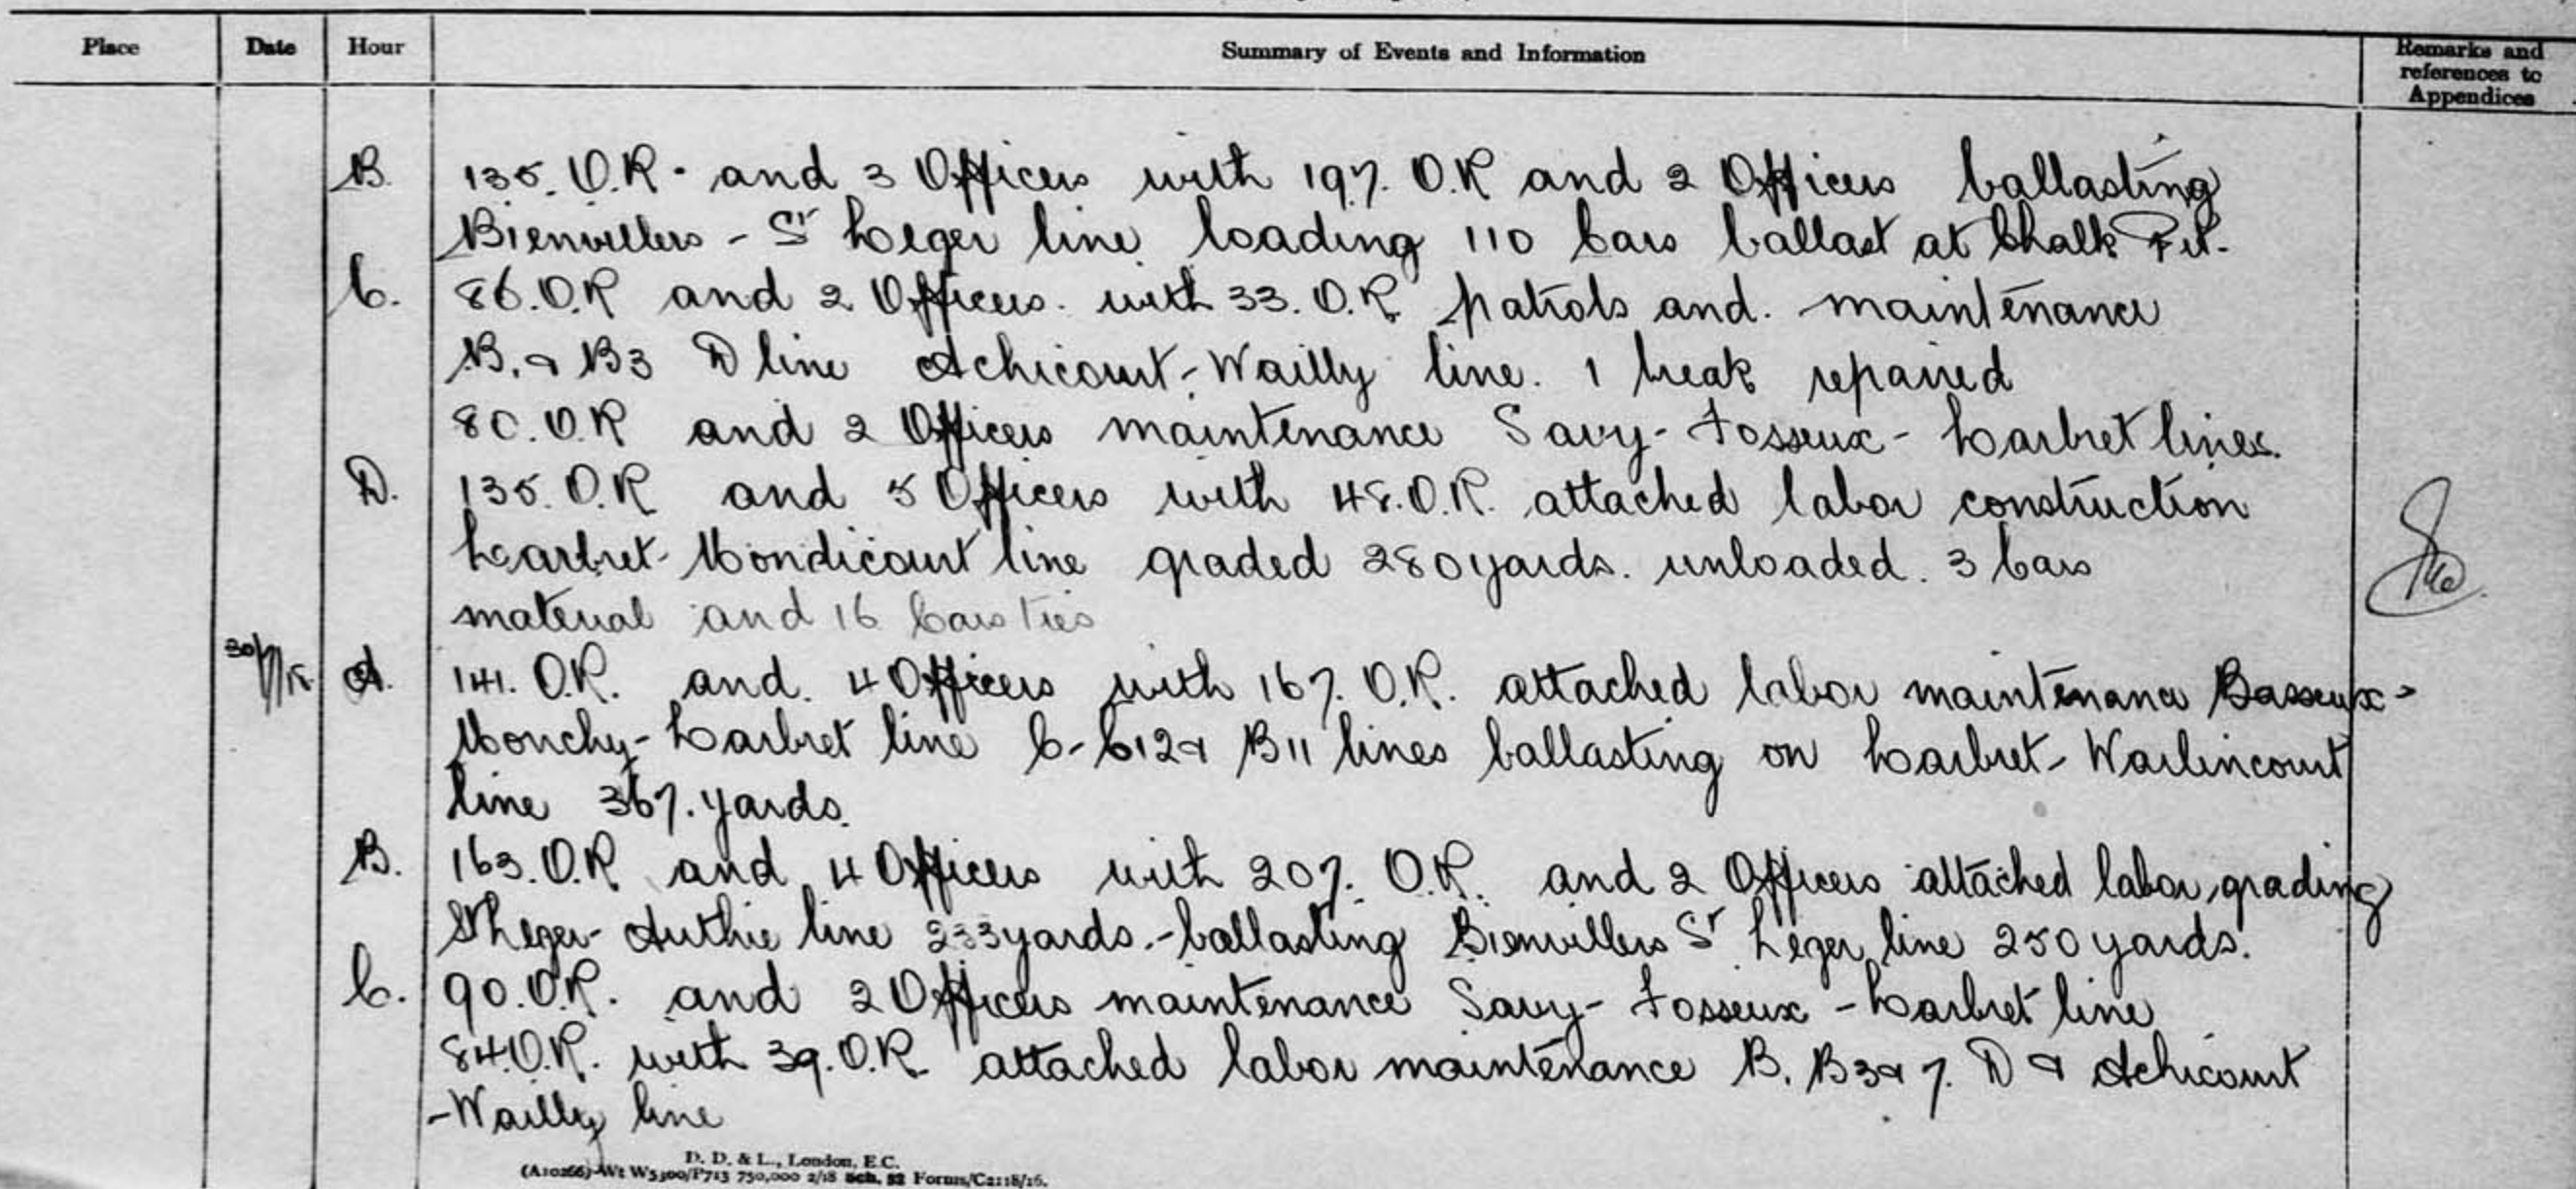 Place Date Hour Summary of Events and Information Remarks and references to Appendices
B. 135. O.R. and 3 Officers with 197. O.R and 2 Officers ballasting
Bienvillers - St Leger line loading 110 Cars ballast at Chalk Pit.
C. 86. O.R and 2 Officers. with 33. O.R. patrols and. maintenance
B. & B3 D line Achicourt - Wailly line. 1 break repaired
80. O.R and 2 Officers maintenance Savy - Fosseux - Larbret lines.
D. 135. O.R and 5 Officers with 48. O.R. attached labor construction
Larbret - Mondicourt line graded 280 yards. unloaded. 3 Cars
material and 16 Cars Ties
A. 141. O.R. and. 4 Officers with 167. O.R. attached labor maintenance Basseux -
Monchy - Larbret line C - C12 & B11 lines ballasting on Larbret - Warlincourt
line 367. yards.
B. 163. O.R and 4 Officers with 207. O.R. and 2 Officers attached labor grading
St Leger - Authie line 233 yards. - ballasting Bienvillers St Leger line 250 yards.
C. 90. O.R. and 2 Officers maintenance Savy - Fosseux - Larbret line
84. O.R. with 39. O.R. attached labor maintenance B. B3 & 7. D & Achicourt
- Wailly line
D. D. & L., London, E.C.
(A10266) Wt W5300/P713 750,000 2/18 Sch. 52 Forms/C2118/16.